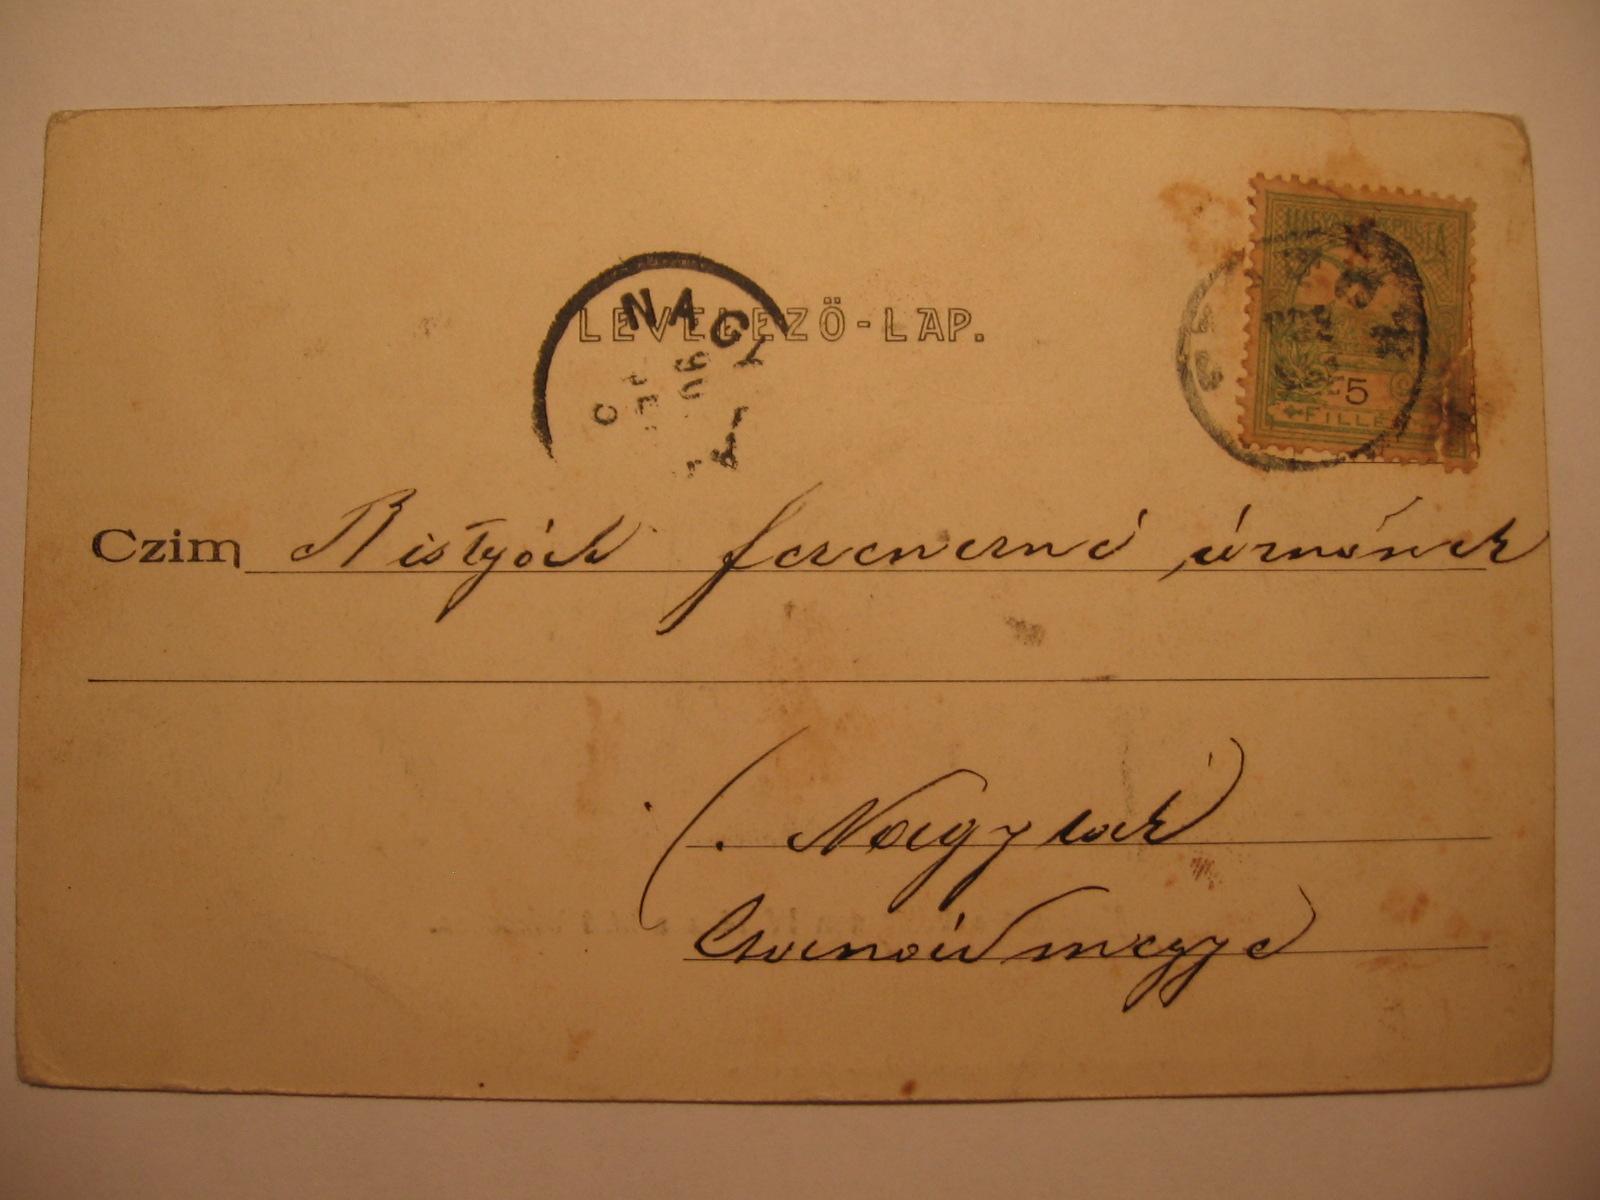 MAGYAR KIR. POSTA
5
FILLÉR
NAGY
LEVELEZŐ-LAP.
Czim Ristyók Ferencné úrnőnek
Nagylak
Csanádmegye